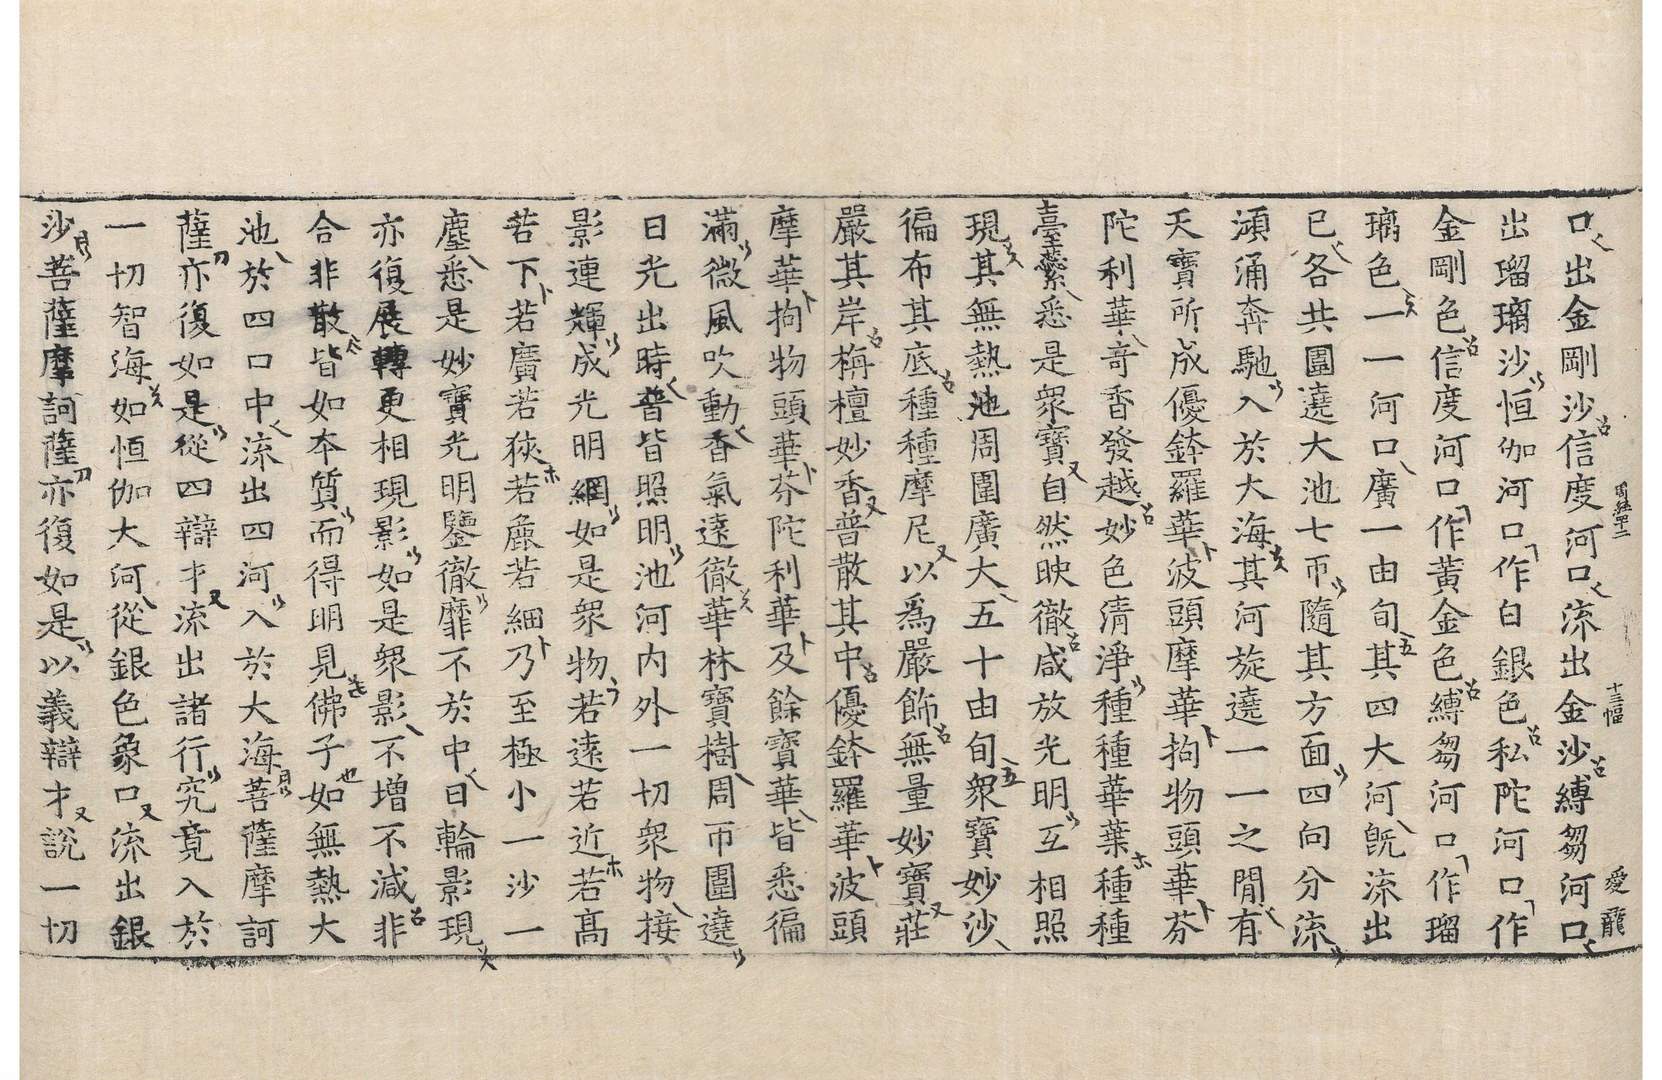 十三幅
愛龍
口出金剛沙信度河口流出金沙縛芻河口
出瑠璃沙恒伽河口作白銀色私陀河口作
金剛色信度河口作黃金色縛芻河口作瑠
璃色一一河口廣一由旬其四大河旣流出
已各共圍遶大池七帀隨其方面四向分流
澒涌奔馳入於大海其河旋遶一一之閒有
天寶所成優鉢羅華波頭摩華拘物頭華芬
陀利華竒香發越妙色清淨種種華葉種種
臺蘂悉是衆寶自然映徹咸放光明互相照
現其無熱池周圍廣大五十由旬衆寶妙沙
徧布其底種種摩尼以爲嚴飾無量妙寶莊
嚴其岸栴檀妙香普散其中優鉢羅華波頭
摩華拘物頭華芬陀利華及餘寶華皆悉徧
滿微風吹動香氣遠徹華林寶樹周帀圍遶
日光出時普皆照明池河內外一切衆物接
影連輝成光明網如是衆物若遠若近若髙
若下若廣若狹若麁若細乃至極小一沙一
塵悉是妙寶光明鑒徹靡不於中日輪影現
亦復展轉更相現影如是衆影不增不減非
合非散皆如本質而得明見佛子如無熱大
池於四口中流出四河入於大海菩薩摩訶
薩亦復如是從四辯才流出諸行究竟入於
一切智海如恒伽大河從銀色象口流出銀
沙菩薩摩訶薩亦復如是以義辯才說一切